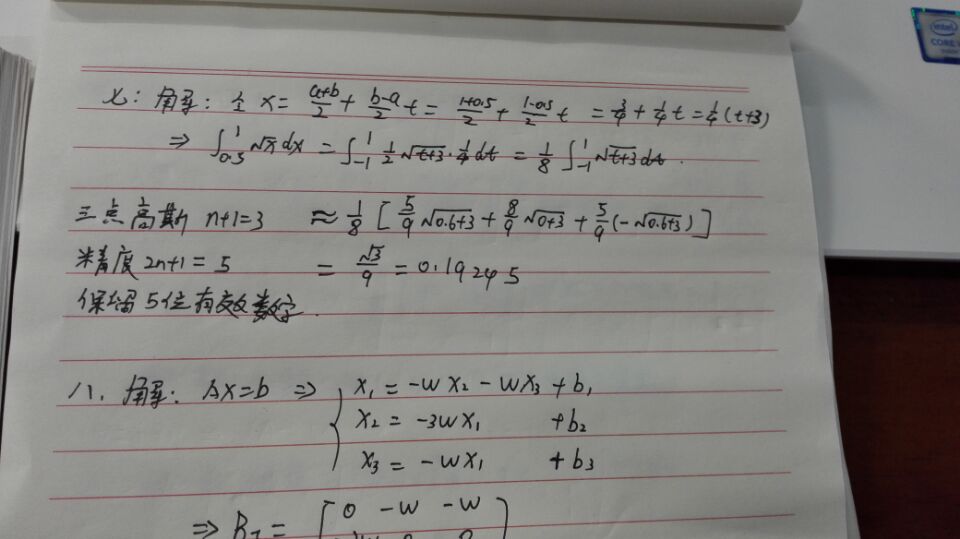 七: 解: 令 x = (a+b)/2 + (b-a)/2 t = (1+0.5)/2 + (1-0.5)/2 t = 3/4 + 1/4 t = 1/4 (t+3)
⇒ ∫_{0.5}^{1} √x dx = ∫_{-1}^{1} 1/2 √(t+3) · 1/4 dt = 1/8 ∫_{-1}^{1} √(t+3) dt.
三点高斯 n+1=3 ≈ 1/8 [ 5/9 √(0.6+3) + 8/9 √(0+3) + 5/9 (-√(0.6+3)) ]
精度 2n+1 = 5 = √3/9 = 0.19245
保留5位有效数字.
八、解: Ax=b ⇒ { x₁ = -wx₂ - wx₃ + b₁
x₂ = -3wx₁ + b₂
x₃ = -wx₁ + b₃
⇒ B_J = [ 0 -w -w ]
intel
CORE